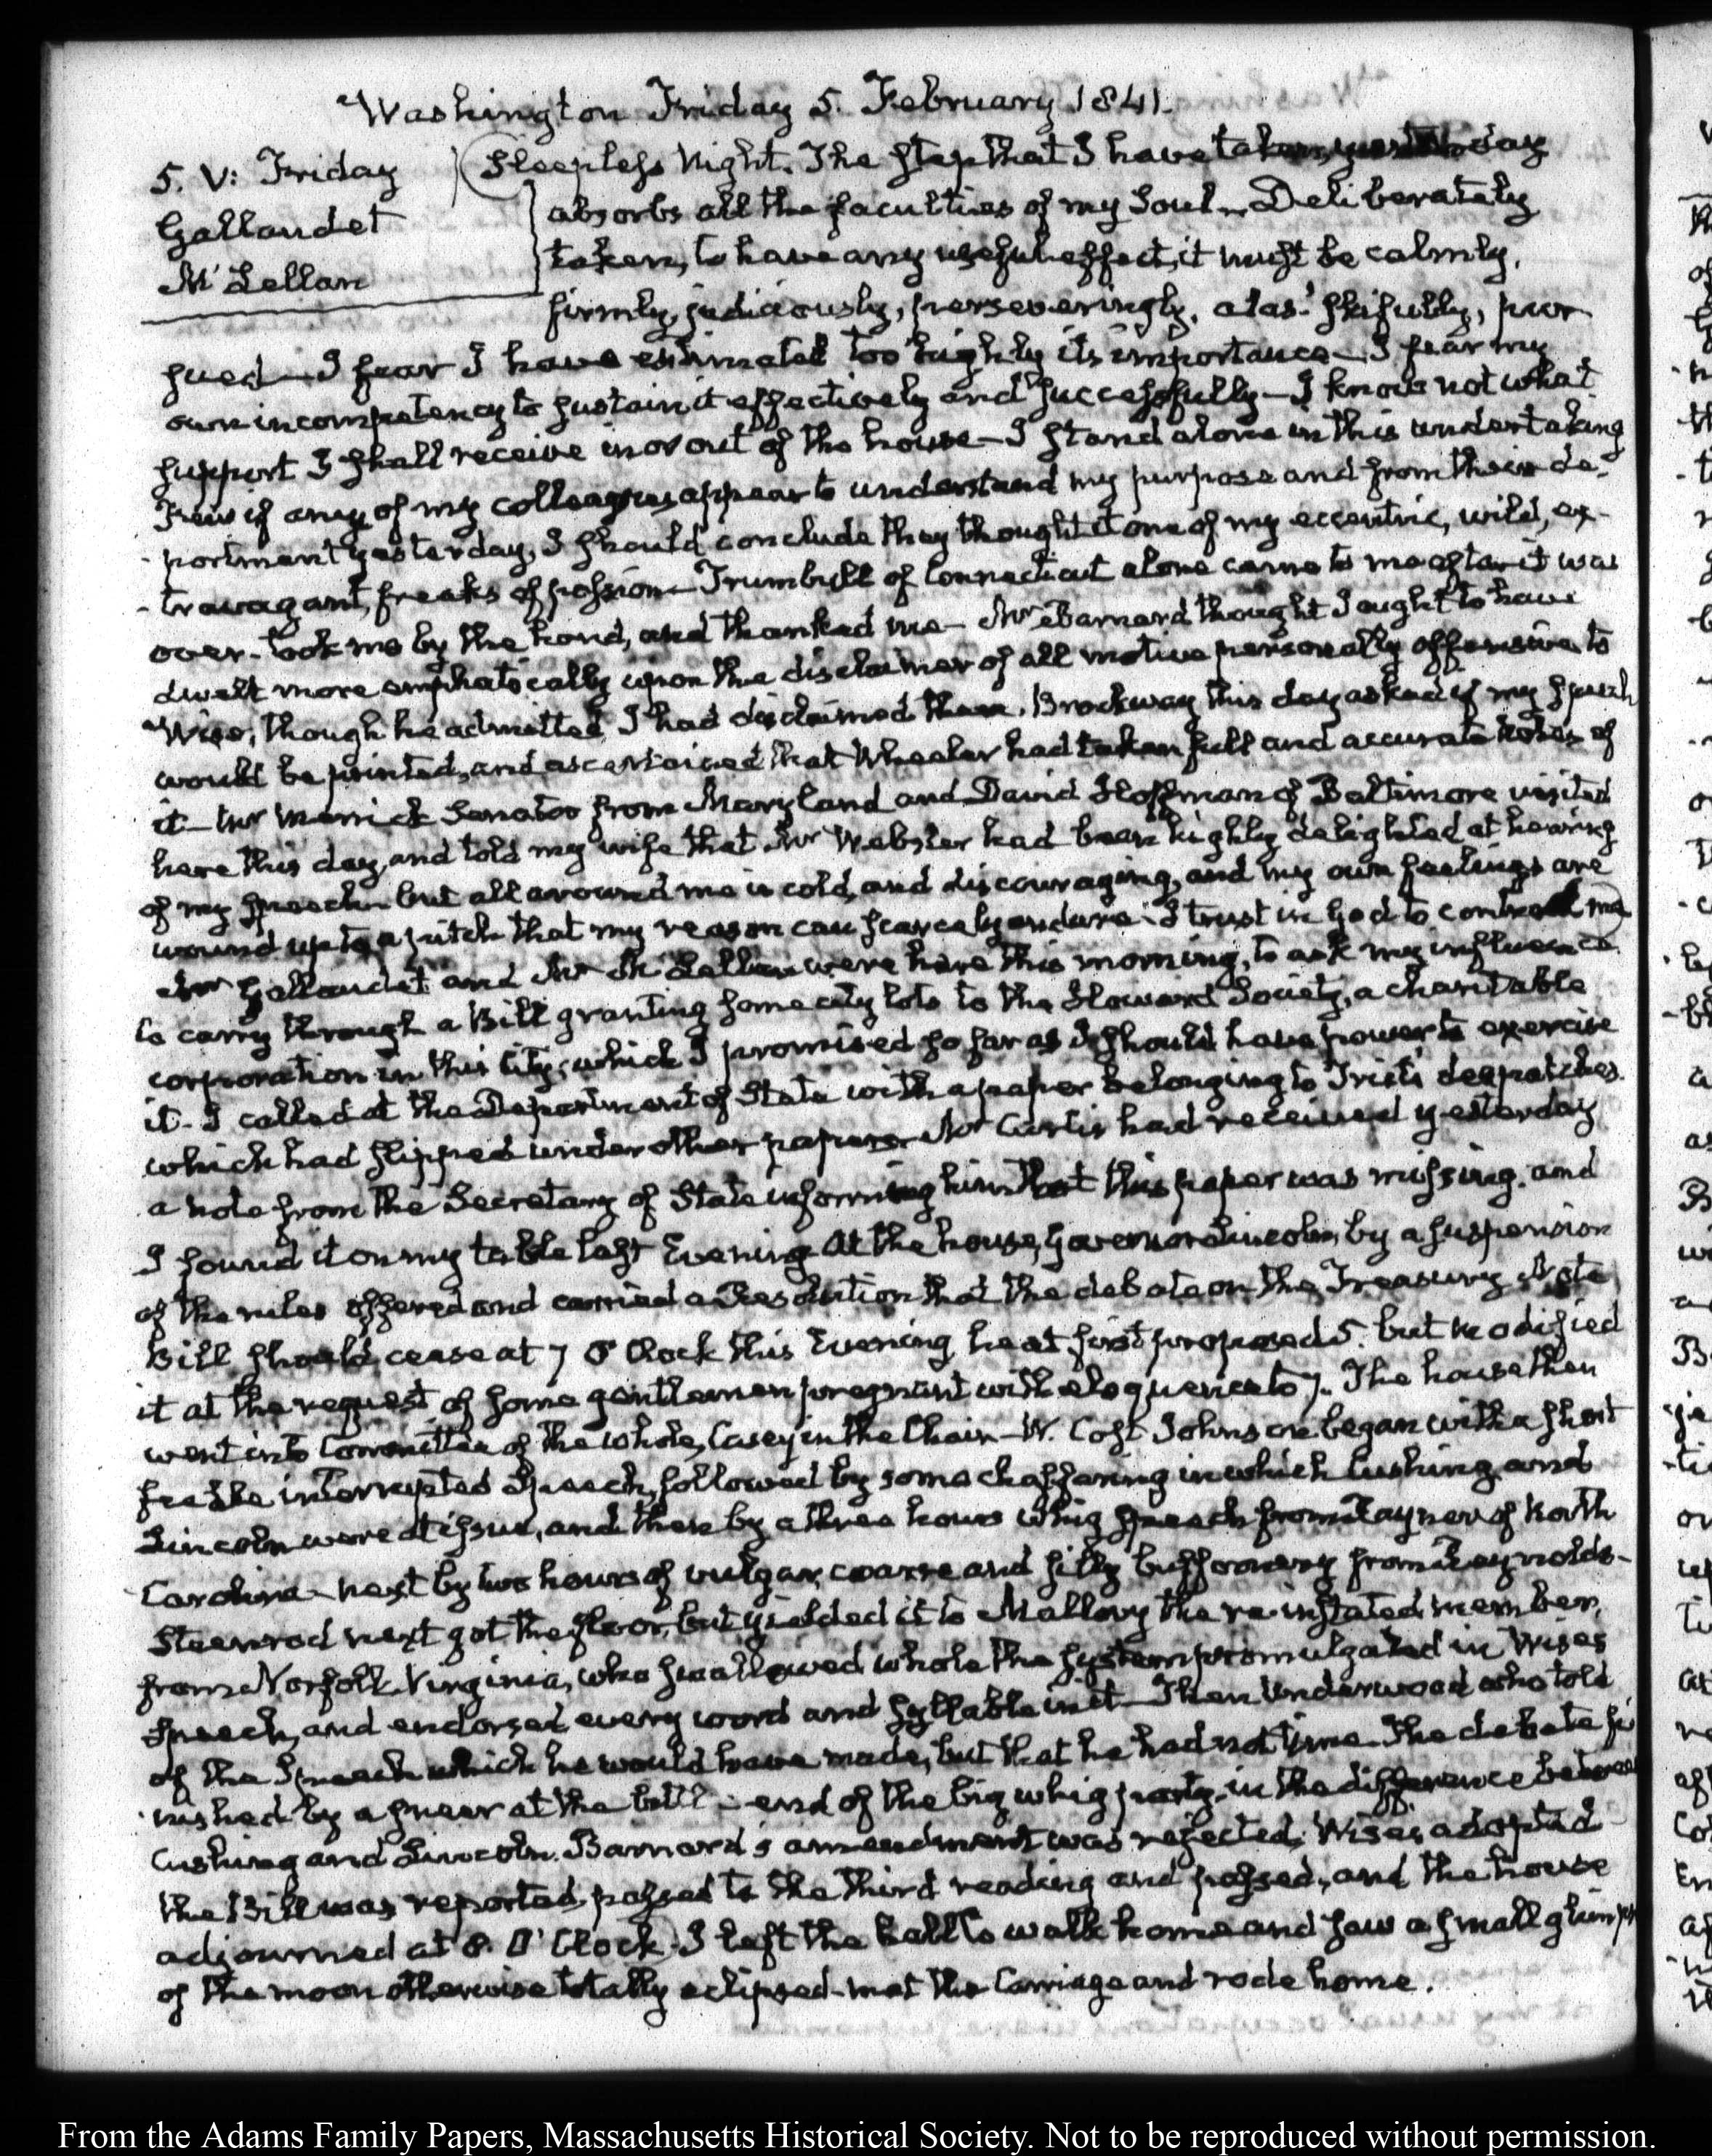 Washington Friday 5. February 1841.
5. V: Friday
Gallaudet
McLellan
Sleepless Night. The step that I have taken, yesterday
absorbs all the faculties of my Soul. Deliberately
taken, to have any useful effect, it must be calmly,
firmly, judiciously, perseveringly, alas! skilfully, pur-
sued—I fear I have estimated too highly its importance—I fear my
own incompetency to sustain it effectively and successfully—I know not what
support I shall receive in or out of the house—I stand alone in this undertaking
Few if any of my colleagues appear to understand my purpose and from their de-
portment yesterday, I should conclude they thought it one of my eccentric, wild, ex-
travagant, freaks of passion—Trumbull of Connecticut alone came to me after it was
over—took me by the hand, and thanked me—Mr Barnard thought I ought to have
dwelt more emphatically upon the disclaimer of all motive personally offensive to
Wise, though he admitted I had disclaimed them. Brockway this day asked if my speech
would be printed, and ascertained that Wheeler had taken full and accurate notes of
it—Mr Merrick Senator from Maryland and David Hoffman of Baltimore visited
here this day, and told my wife that Mr Webster had been highly delighted at hearing
of my speech—but all around me is cold, and discouraging, and my own feelings are
wound up to a pitch that my reason can scarcely endure—I trust in God to control me
Mr Gallaudet and Mr McLellan were here this morning, to ask my influence
to carry through a Bill granting some city lots to the Howard Society, a charitable
corporation in this City; which I promised so far as I should have power to exercise
it—I called at the Department of State with a paper belonging to Trist's despatches
which had slipped under other papers—Mr Curtis had received yesterday
a note from the Secretary of State informing him that this paper was missing. and
I found it on my table last Evening—At the house, Governor Lincoln, by a suspension
of the rules offered and carried a Resolution that the debate on the Treasury Note
Bill should cease at 7 O'Clock this Evening he at first proposed 5. but modified
it at the request of some gentlemen pregnant with eloquence to 7. The house then
went into Committee of the whole, Casey in the Chair—W. Cost Johnson began with a short
interrupted speech, followed by some chaffering in which Cushing and
Lincoln were at issue, and then by a three hours whig speech from Rayner of North
Carolina—next by two hours of vulgar, coarse and silly buffoonery from Reynolds—
Steenrod next got the floor, but yielded it to Mallory the re-instated member,
from Norfolk Virginia, who swallowed whole the system promulgated in Wise's
speech, and endorsed every word and syllable in it—Then Underwood who told
of the speech which he would have made, but that he had not time—The debate fi-
nished by a sneer at the butt-end of the big whig party, in the difference between
Cushing and Lincoln. Barnard's amendment was rejected; Wise's adopted
the Bill was reported, passed to the third reading and passed, and the house
adjourned at 8. O'Clock. I left the hall to walk home and saw a small glimpse
of the moon otherwise totally eclipsed—met the Carriage and rode home.
From the Adams Family Papers, Massachusetts Historical Society. Not to be reproduced without permission.